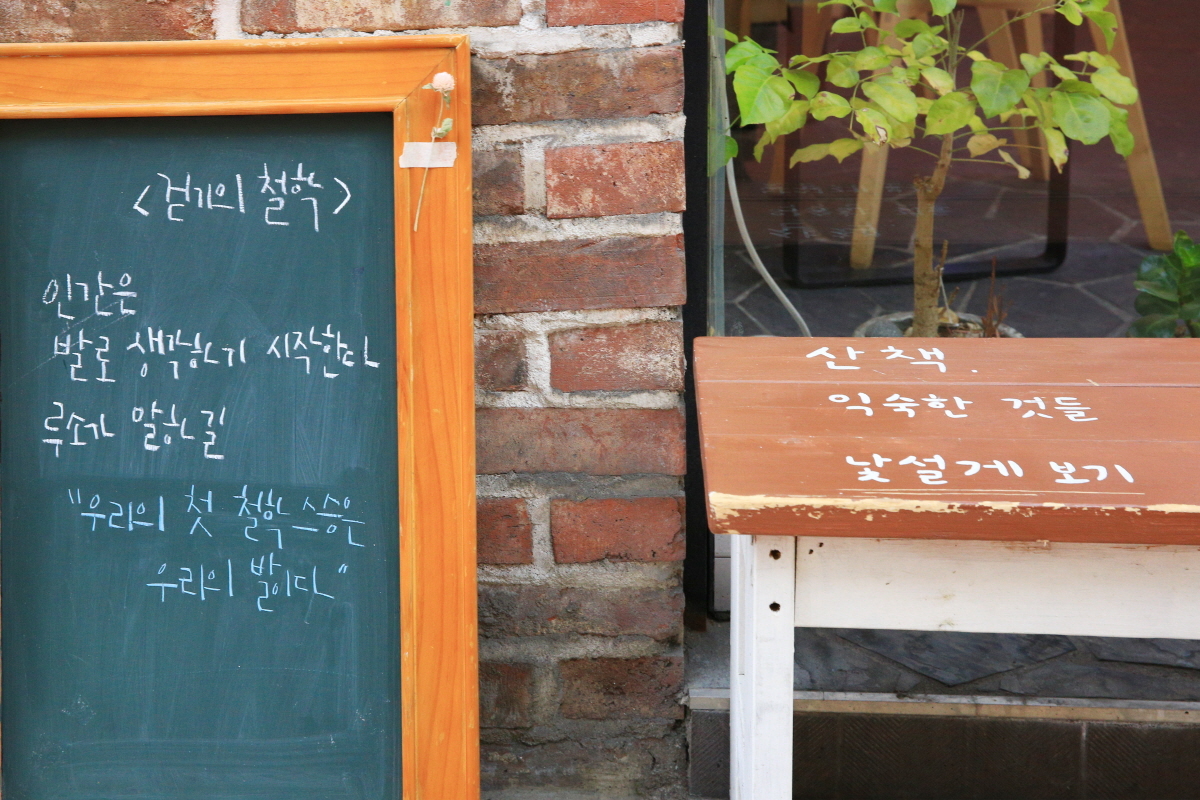 <걷기의 철학>
인간은
발로 생각하기 시작한다
루소가 말하길
"우리의 첫 철학 스승은
우리의 발이다"
산책.
익숙한 것들
낯설게 보기